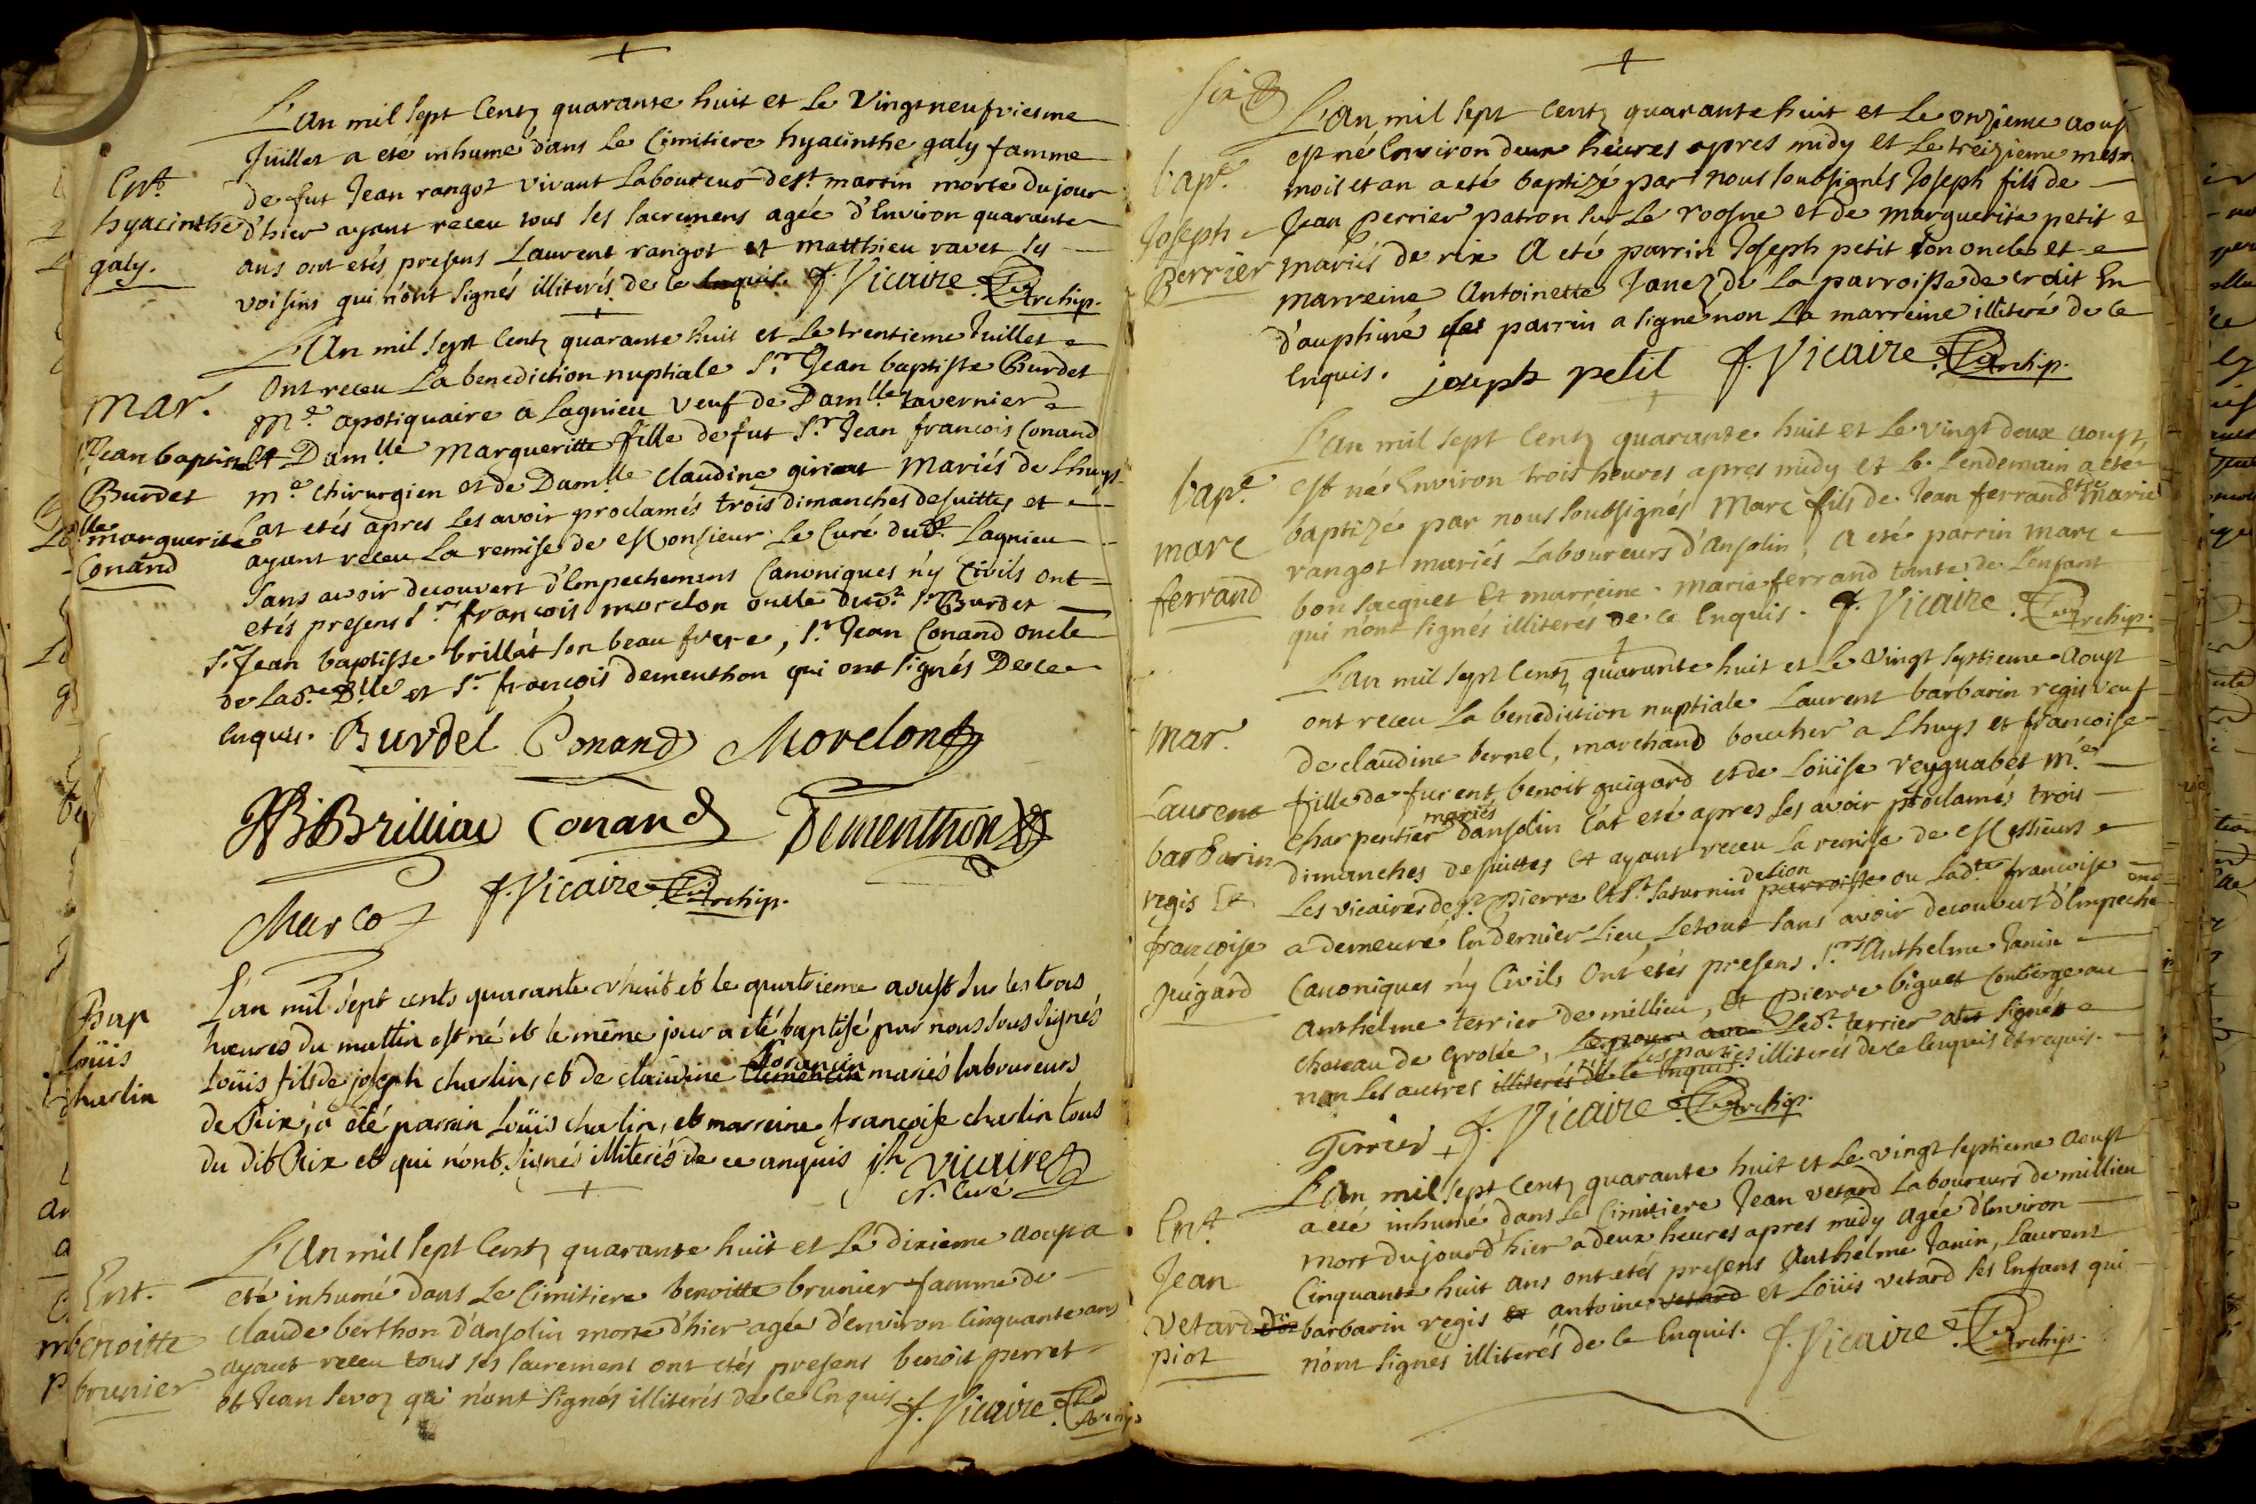 L'an mil sept centz quarante huit et le vingt neufviesme
Juillet a eté inhumé dans le Cimitiere hyacinthe galy famme
de fut Jean rangot vivant laboureur de st. martin morte du jour
d'hier ayant receu tous ses sacremens agée d'Environ quarante
ans ont etés presens Laurent rangot et matthieu ravet ses
voisins qui n'ont signés illiterés de ce Enquis. J. Vicaire Archip.
Ent.
hyacinthe
galy.
L'An mil sept centz quarante huit et le trentieme Juillet
Ont receu la benediction nuptiale Sr. Jean baptiste Burdet
Me. apotiquaire a Lagnieu veuf de Damlle tavernier
Et Damlle Margueritte fille de fut Sr. Jean francois Conand
me. chirurgien et de Damlle Claudine mariés de Lhuys
l'at etés apres les avoir proclamés trois dimanches desuittes et
ayant receu la remise de Monsieur le Curé dudt. Lagnieu
sans avoir decouvert d'Empechemens Canoniques n'y Civils ont
etés presens Sr. françois morelon oncle dudt. Sr. Burdet
Sr. Jean baptiste brillat son beau frere, Sr. Jean Conand oncle
de lade. Dlle et Sr. françois dementhon qui ont signés De ce
Enquis. Burdet Conand Morelon
JB Brilliat Conand Dementhon
Marco J. Vicaire Archip.
mar.
Jean baptiste
Burdet
marguerite
Conand
L'an mil sept cents quarante huit et le quatrieme aoust sur les trois
heures du mattin est né et le même jour a eté baptisé par nous sous signés
Loüis fils de joseph charlin, et de claudine Clemencin Morancin mariés laboureurs
de Rix, a eté parrain Loüis charlin, et marreine françoise charlin tous
du dit Rix et qui n'ont signés illiterés de ce anquis jh. vicaire
N. Curé
Bap
Loüis
charlin
L'An mil sept centz quarante huit et le dixieme aoust a
eté inhumé dans le Cimitiere benoitte brunier famme de
claude berthon d'ansolin morte d'hier agée d'environ Cinquante ans
ayant receu tous ses sacremens ont etés presens benoit perret
et Jean sevoz qui n'ont signés illiterés de ce Enquis J. Vicaire Archip.
Ent.
benoitte
brunier
L'an mil sept centz quarante huit et le onzieme aoust
est né Environ deux heures apres midy et le treizieme mesme
mois et an a eté baptizé par nous soubsignés Joseph fils de
Jean perrier patron sur le roosne et de marguerite petit
mariés de rix A eté parrin Joseph petit son oncle et
marreine Antoinette Janez de la parroisse de trait En
d'auphiné les parrin a signé non la marreine illiteré de ce
Enquis. joseph petit J. Vicaire Archip.
bape.
Joseph
perrier
L'an mil sept Centz quarante huit et le vingt deux aoust
est né Environ trois heures apres midy et le lendemain a eté
baptizé par nous soubsignés Marc fils de Jean ferrand et de marie
rangot mariés laboureurs d'ansolin, a eté parrin marc
bon jacquet et marreine marie ferrand tante de l'enfant
qui n'ont signés illiterés de ce Enquis. J. Vicaire Archip.
bape.
marc
ferrand
L'an mil sept Centz quarante huit et le vingt septieme aoust
ont receu la benediction nuptiale Laurent barbarin regis veuf
de claudine bernel, marchand boucher a Lhuys et françoise
fille de furent benoit guigard et de Loüise reyguabet me.
Charpentier mariés d'ansolin l'at eté apres les avoir proclamés trois
dimanches desuittes et ayant receu la remise de Messieurs
les vicaires de St. Pierre et St. saturnin de lion parroisse ou lade. francoise
a demeuré En dernier lieu, le tout sans avoir decouvert d'Empeche
Canoniques n'y Civils Ont etés presens Sr. Anthelme Janin
Anthelme terrier de millieu, Et Pierre biguet Concierge au
chateau de Grolée, ledt. terrier at signés
non les autres illiterés de ce Enquis. illiterés de ce Enquis et requis.
Terrier J. Vicaire Archip.
mar.
Laurent
barbarin
regis Et
françoise
guigard
L'An mil sept Centz quarante huit et le vingt septieme aoust
a eté inhumé dans le Cimitiere Jean vetard laboureurs de millieu
mort du jourd'hier a deux heures apres midy agée d'Environ
Cinquante huit ans ont etés presens Anthelme Janin, Laurent
barbarin regis et antoine vetard et Loüis vetard ses Enfans qui
n'ont signés illiterés de ce Enquis. J. Vicaire Archip.
Ent.
Jean
vetard
piot